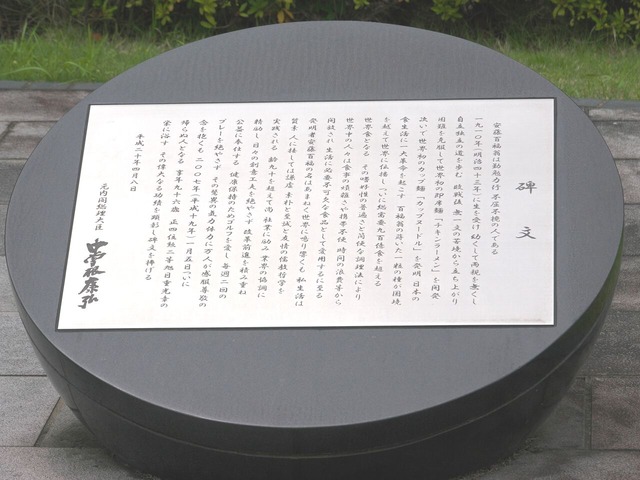 碑文
安藤百福翁は勤勉力行 不屈不撓の人である
一九一〇年(明治四十三年)に生を受け 幼くして両親を亡くし
自主独立の道を歩む 敗戦後 無一文の苦境から立ち上がり
困難を克服して世界初の即席麺「チキンラーメン」を開発
次いで世界初のカップ麺「カップヌードル」を発明 日本の
食生活に一大革命を起こす 百福翁の蒔いた一粒の種が国境
を越えて世界に伝播し ついに総需要九百億食を超える
世界食となる その嗜好性の普遍さと簡便な調理法により
世界中の人々は食事の煩雑さや携帯不便 時間の浪費等から
開放され 生活に必要不可欠な食品として愛用するに至る
発明者安藤百福の名はあまねく世界に鳴り響くも 私生活は
質素 人に接しては謙虚 素朴と至誠と友情の儒教哲学を
実践される 齢九十を超えて尚 社業に励み 業界の協調に
精励し 日々の創意工夫を絶やさず 改革前進を積み重ね
公益に奉仕する 健康保持のためゴルフを愛し 毎週二回の
プレーを絶やさず その驚異の気力体力に万人が感服尊敬の
念を抱くも 二〇〇七年(平成十九年)一月五日 ついに
帰らぬ人となる 享年九十六歳 正四位勲二等旭日重光章の
栄に浴す その偉大なる功績を顕彰し 碑文を捧げる
平成二十年四月八日
元内閣総理大臣
中曽根康弘